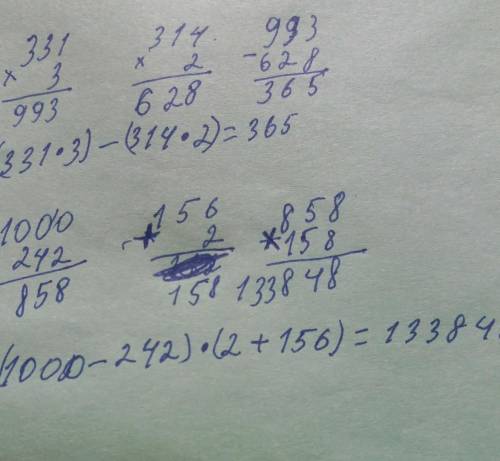 331 × 3 993
314 × 2 628
993 - 628 365
(331·3)-(314·2)=365
1000 242 858
156 + 2 158
858 * 158 133848
(1000-242)·(2+156)=13384